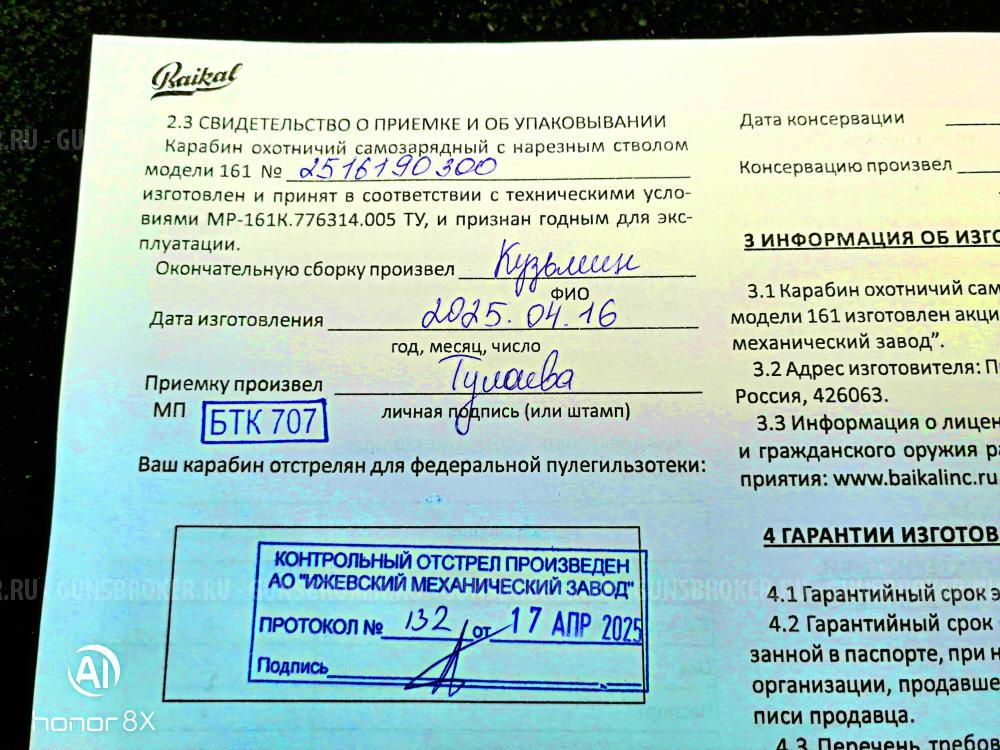 Baikal
2.3 СВИДЕТЕЛЬСТВО О ПРИЕМКЕ И ОБ УПАКОВЫВАНИИ
Карабин охотничий самозарядный с нарезным стволом
модели 161 № 2516190300
изготовлен и принят в соответствии с техническими усло-
виями МР-161К.776314.005 ТУ, и признан годным для экс-
плуатации.
Окончательную сборку произвел Кузьмин
ФИО
Дата изготовления 2025.04.16
год, месяц, число
Приемку произвел Тулаева
МП БТК 707 личная подпись (или штамп)
Ваш карабин отстрелян для федеральной пулегильзотеки:
КОНТРОЛЬНЫЙ ОТСТРЕЛ ПРОИЗВЕДЕН
АО "ИЖЕВСКИЙ МЕХАНИЧЕСКИЙ ЗАВОД"
ПРОТОКОЛ № 132 от 17 АПР 2025
Подпись
Дата консервации
Консервацию произвел
3 ИНФОРМАЦИЯ ОБ ИЗГО
3.1 Карабин охотничий сам
модели 161 изготовлен акци
механический завод”.
3.2 Адрес изготовителя: П
Россия, 426063.
3.3 Информация о лицен
и гражданского оружия ра
приятия: www.baikalinc.ru
4 ГАРАНТИИ ИЗГОТОВ
4.1 Гарантийный срок э
4.2 Гарантийный срок
занной в паспорте, при н
организации, продавше
писи продавца.
4.3 Перечень требов
.RU - GUNSBROKER.RU - GUNSBROKER.RU - GUNSBROKER.RU
.RU - GUNSBROKER.RU - GUNSBROKER.RU - GUNSBROKER.RU
AI
honor 8X